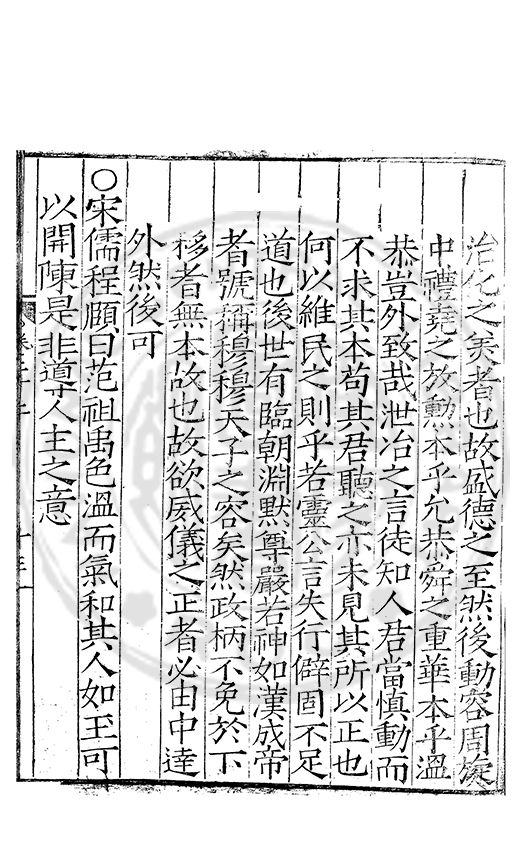 治化之美者也故盛德之至然後動容周旋
中禮堯之放勲本乎允恭舜之重華本乎溫
恭豈外致哉泄冶之言徒知人君當慎動而
不求其本苟其君聽之亦未見其所以正也
何以維民之則乎若靈公言失行僻固不足
道也後世有臨朝淵默尊嚴若神如漢成帝
者號稱穆穆天子之容矣然政柄不免於下
移者無本故也故欲威儀之正者必由中達
外然後可
○宋儒程頤曰范祖禹色溫而氣和其人如玉可
以開陳是非導人主之意